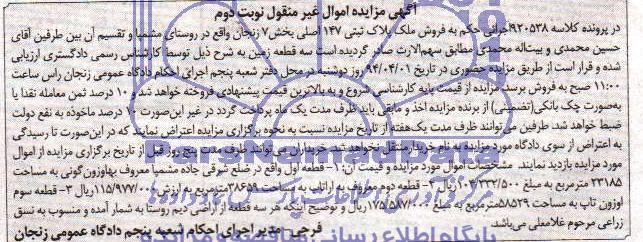 آگهی مزایده اموال غیر منقول نوبت دوم
در پرونده کلاسه ۹۲۰۵۳۸اجرائی حکم به فروش ملک پلاک ثبتی ۱۴۷ اصلی بخش۷ زنجان واقع در روستای مشمپا و تقسیم آن بین طرفین آقای
حسین محمدی و بیت‌اله محمدی مطابق سهم‌الارث صادر گردیده است سه قطعه زمین به شرح ذیل توسط کارشناس رسمی دادگستری ارزیابی
شده و قرار است از طریق مزایده حضوری در تاریخ ۹۴/۰۴/۰۱ روز دوشنبه در محل دفتر شعبه پنجم اجرای احکام دادگاه عمومی زنجان راس ساعت
۱۱:۰۰ صبح به فروش برسد مزایده از قیمت پایه کارشناسی شروع و به بالاترین قیمت پیشنهادی فروخته خواهد شد ۱۰ درصد ثمن معامله نقدا یا
به‌صورت چک بانکی(تضمینی) از برنده مزایده اخذ و مابقی باید ظرف مدت یک ماه پرداخت گردد در غیر این‌صورت ۱۰ درصد ماخوذه به نفع دولت
ضبط خواهد شد. طرفین می‌توانند ظرف مدت یک‌هفته از تاریخ مزایده نسبت به نحوه برگزاری مزایده اعتراض نمایند که در این‌صورت تا رسیدگی
به اعتراض از سوی دادگاه مورد مزایده به نام خریدار منتقل نخواهد شد. خریداران می‌توانند ظرف مدت پنج روز قبل از تاریخ برگزاری مزایده از اموال
مورد مزایده بازدید نمایند. مشخصات اموال مورد مزایده و قیمت آن: ۱- قطعه اول واقع در ضلع شرقی جاده مشمپا معروف بهاوزون گونی به مساحت
۲۳۱۸۵ مترمربع به مبلغ ریال ۲- قطعه دوم معروف به اراتاپ به مساحت ۳۸۶۵۹مترمربع به ارزش ۱۱۵/۹۷۷/۰۰۰ریال ۳- قطعه سوم
اوزون تاپ به مساحت ۵۸۵۲۹مترمربع به مبلغ ۱۷۵/۵۸۷/۰۰۰ریال و توضیح اینکه هر سه قطعه از اراضی دیم روستا به شمار آمده و منسوب به نسق
زراعی مرحوم غلامعلی می‌باشد.
فرجی-مدیر اجرای احکام شعبه پنجم دادگاه عمومی زنجان
ParsNamadData
پایگاه اطلاع رسانی مناقصه و مزایده